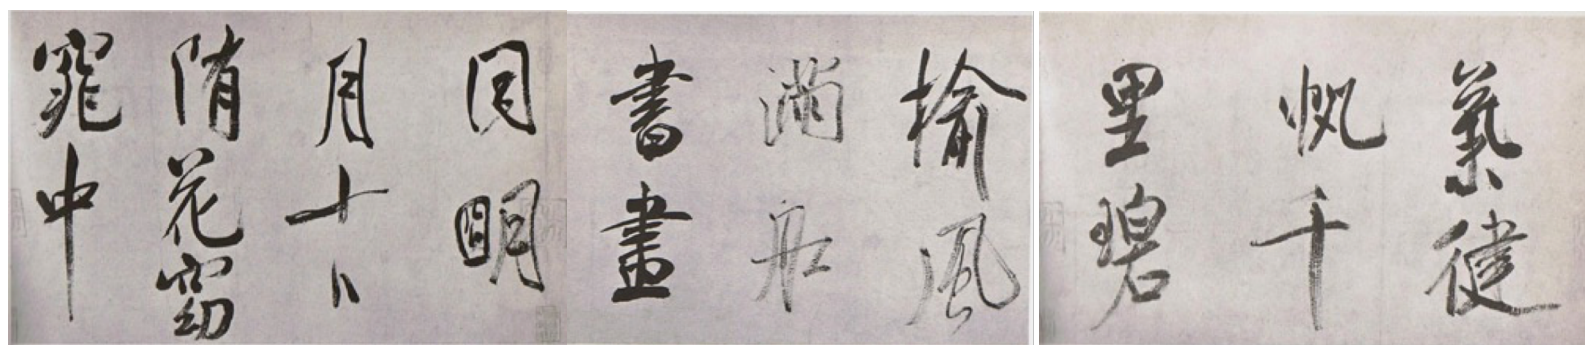 氣健
帆千
里碧
榆風
滿船
書畫
同明
月十
隋花窈
窕中